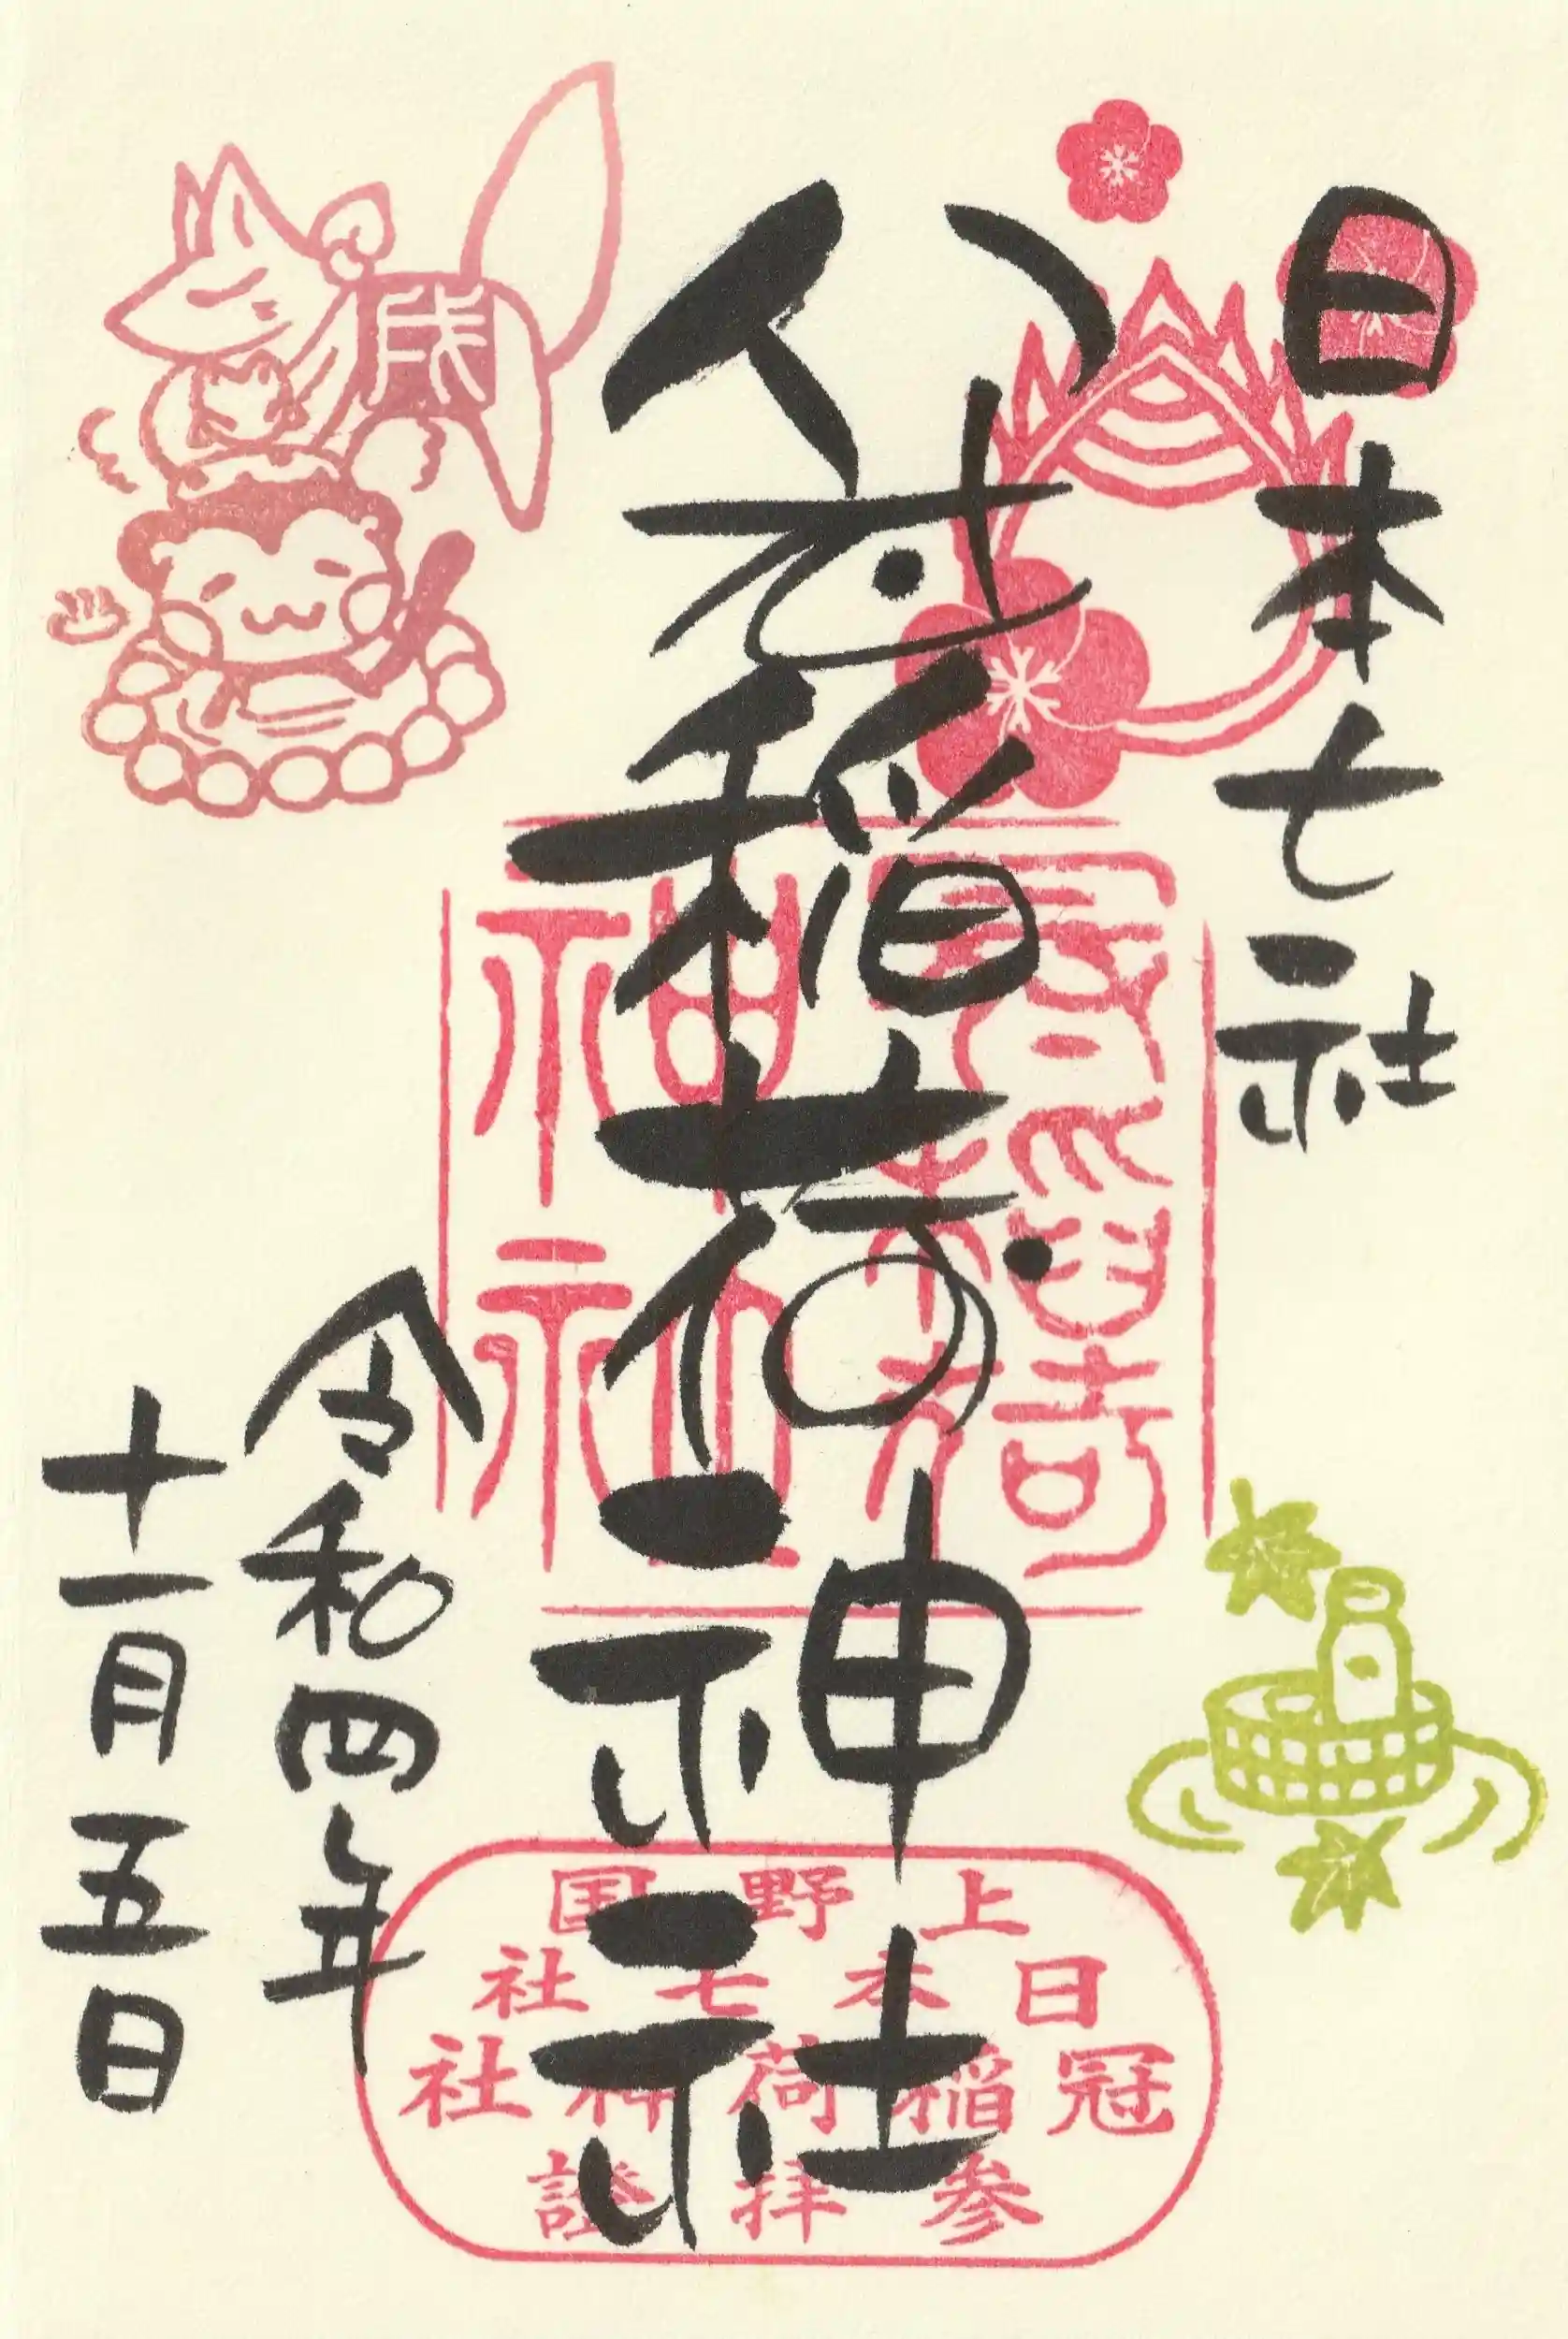 日本七社
冠稲荷神社
令和四年
十一月五日
冠稲荷
神社
上野国
日本七社
冠稲荷神社
参拝證